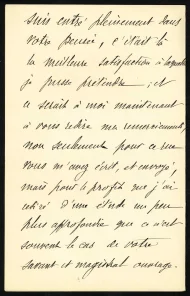 suis entré pleinement dans
votre pensée, c'était là
la meilleure satisfaction à laquelle
je pusse prétendre ; et
ce serait à moi maintenant
à vous redire mes remerciements,
non seulement pour ce que
vous m'avez écrit, et envoyé,
mais pour le profit que j'ai
retiré d'une étude un peu
plus approfondie que ce n'est
souvent le cas de votre
savant et magistral ouvrage.